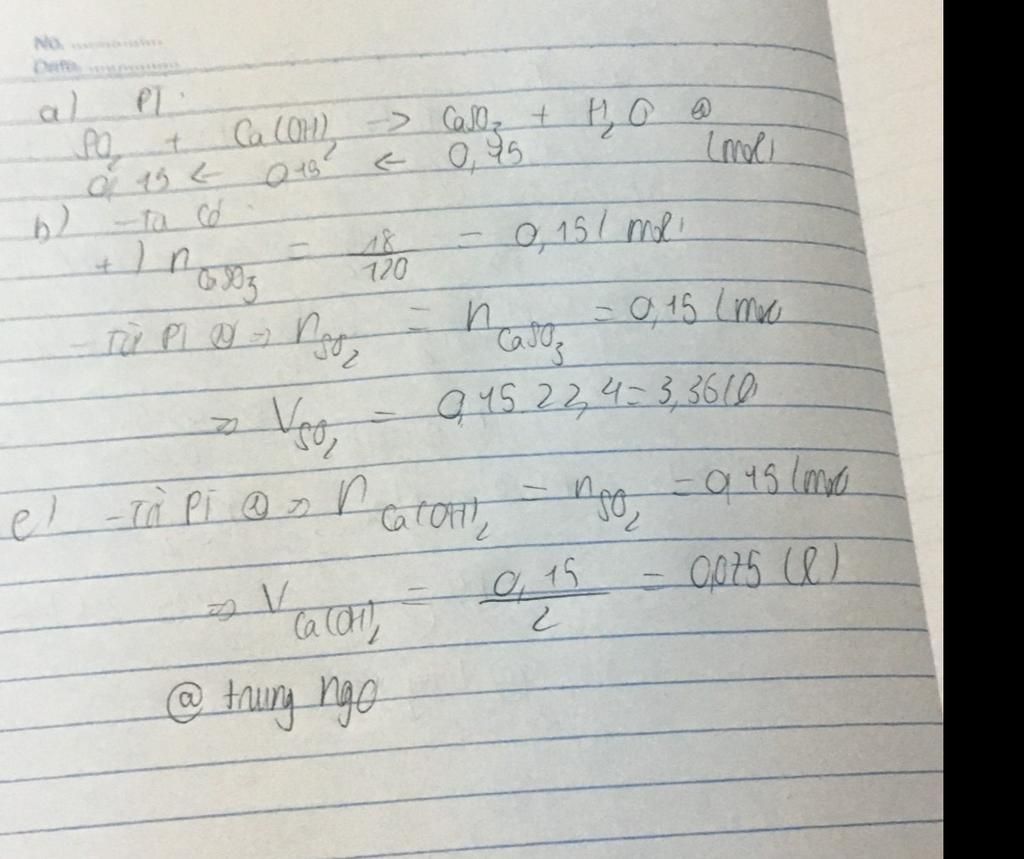 No. ................
Date ................
a) PT
SO₂ + Ca(OH)₂ -> CaSO₃ + H₂O ①
0,15 <- 0,15 <- 0,15 (mol)
b) - Ta có
+) n CaSO₃ = 18/120 = 0,15 (mol)
- Từ PT ① => n SO₂ = n CaSO₃ = 0,15 (mol
=> V SO₂ = 0,15 22,4 = 3,36 (l)
c) - Từ PT ① => n Ca(OH)₂ = n SO₂ = 0,15 (mol
=> V Ca(OH)₂ = 0,15/2 = 0,075 (l)
@ trung ngo